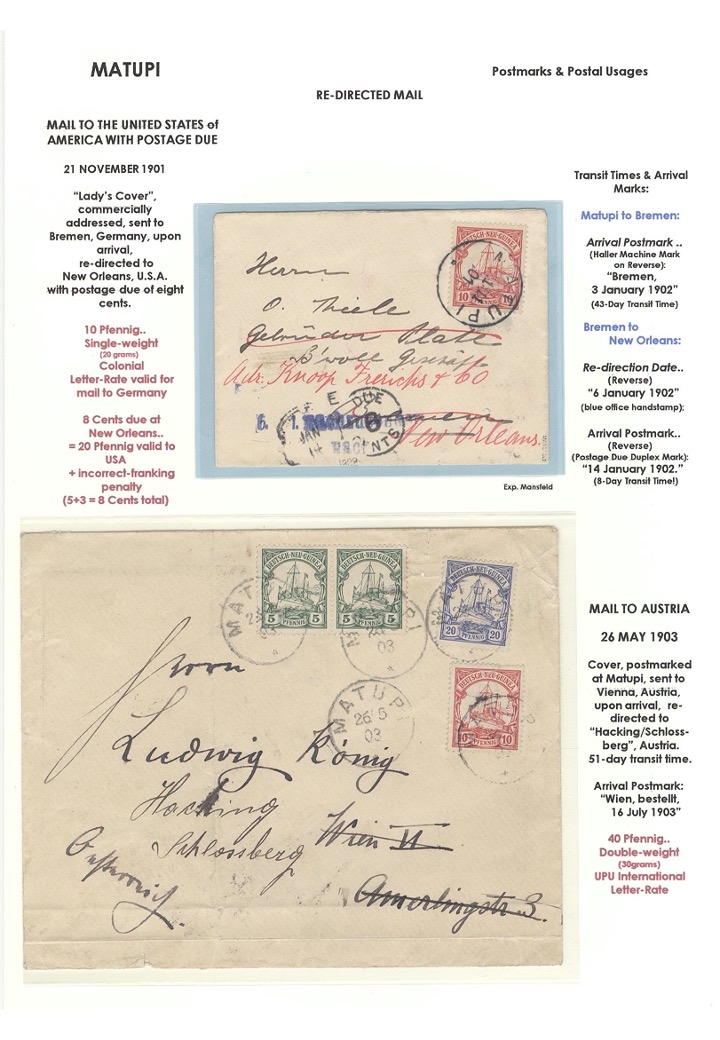 MATUPI
Postmarks & Postal Usages
RE-DIRECTED MAIL
MAIL TO THE UNITED STATES of
AMERICA WITH POSTAGE DUE
21 NOVEMBER 1901
"Lady's Cover",
commercially
addressed, sent to
Bremen, Germany, upon
arrival,
re-directed to
New Orleans, U.S.A.
with postage due of eight
cents.
10 Pfennig..
Single-weight
(20 grams)
Colonial
Letter-Rate valid for
mail to Germany
8 Cents due at
New Orleans..
= 20 Pfennig valid to
USA
+ incorrect-franking
penalty
(5+3 = 8 Cents total)
DEUTSCH-NEU-GUINEA
10 PFENNIG
MATUPI
Herrn
O. Thiele
Gebrüder Plate
B'woll Geschäft
Adr. Knoop Frerichs & Co
Bremen
New Orleans.
DUE
8
CENTS
JAN
14
1902
Exp. Mansfeld
Transit Times & Arrival
Marks:
Matupi to Bremen:
Arrival Postmark ..
(Haller Machine Mark
on Reverse):
"Bremen,
3 January 1902"
(43-Day Transit Time)
Bremen to
New Orleans:
Re-direction Date..
(Reverse)
"6 January 1902"
(blue office handstamp);
Arrival Postmark..
(Reverse)
(Postage Due Duplex Mark):
"14 January 1902."
(8-Day Transit Time!)
DEUTSCH-NEU-GUINEA
5 PFENNIG 5
DEUTSCH-NEU-GUINEA
5 PFENNIG 5
DEUTSCH-NEU-GUINEA
20 PFENNIG 20
DEUTSCH-NEU-GUINEA
10 PFENNIG 10
MATUPI
26/5
03
Herrn
Ludwig König
Hacking
Schlossberg Wien VI
Oesterreich.
Amerlingstr 3.
MAIL TO AUSTRIA
26 MAY 1903
Cover, postmarked
at Matupi, sent to
Vienna, Austria,
upon arrival, re-
directed to
"Hacking/Schloss-
berg", Austria.
51-day transit time.
Arrival Postmark:
"Wien, bestellt,
16 July 1903"
40 Pfennig..
Double-weight
(30grams)
UPU International
Letter-Rate